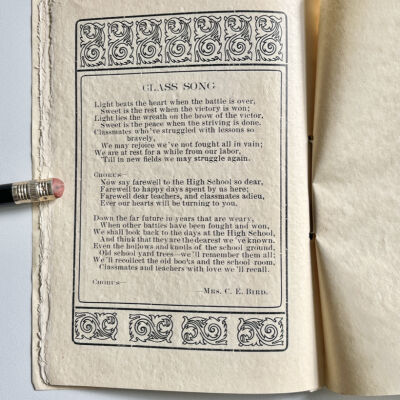 CLASS SONG
Light beats the heart when the battle is over,
Sweet is the rest when the victory is won;
Light lies the wreath on the brow of the victor,
Sweet is the peace when the striving is done.
Classmates who've struggled with lessons so
bravely,
We may rejoice we've not fought all in vain;
We are at rest for a while from our labor,
'Till in new fields we may struggle again.
CHORUS—
Now say farewell to the High School so dear,
Farewell to happy days spent by us here;
Farewell dear teachers, and classmates adieu,
Ever our hearts will be turning to you.
Down the far future in years that are weary,
When other battles have been fought and won,
We shall look back to the days at the High School,
And think that they are the dearest we've known.
Even the hollows and knolls of the school ground,
Old school yard trees—we'll remember them all;
We'll recollect the old books and the school room,
Classmates and teachers with love we'll recall.
CHORUS—
—MRS. C. E. BIRD.